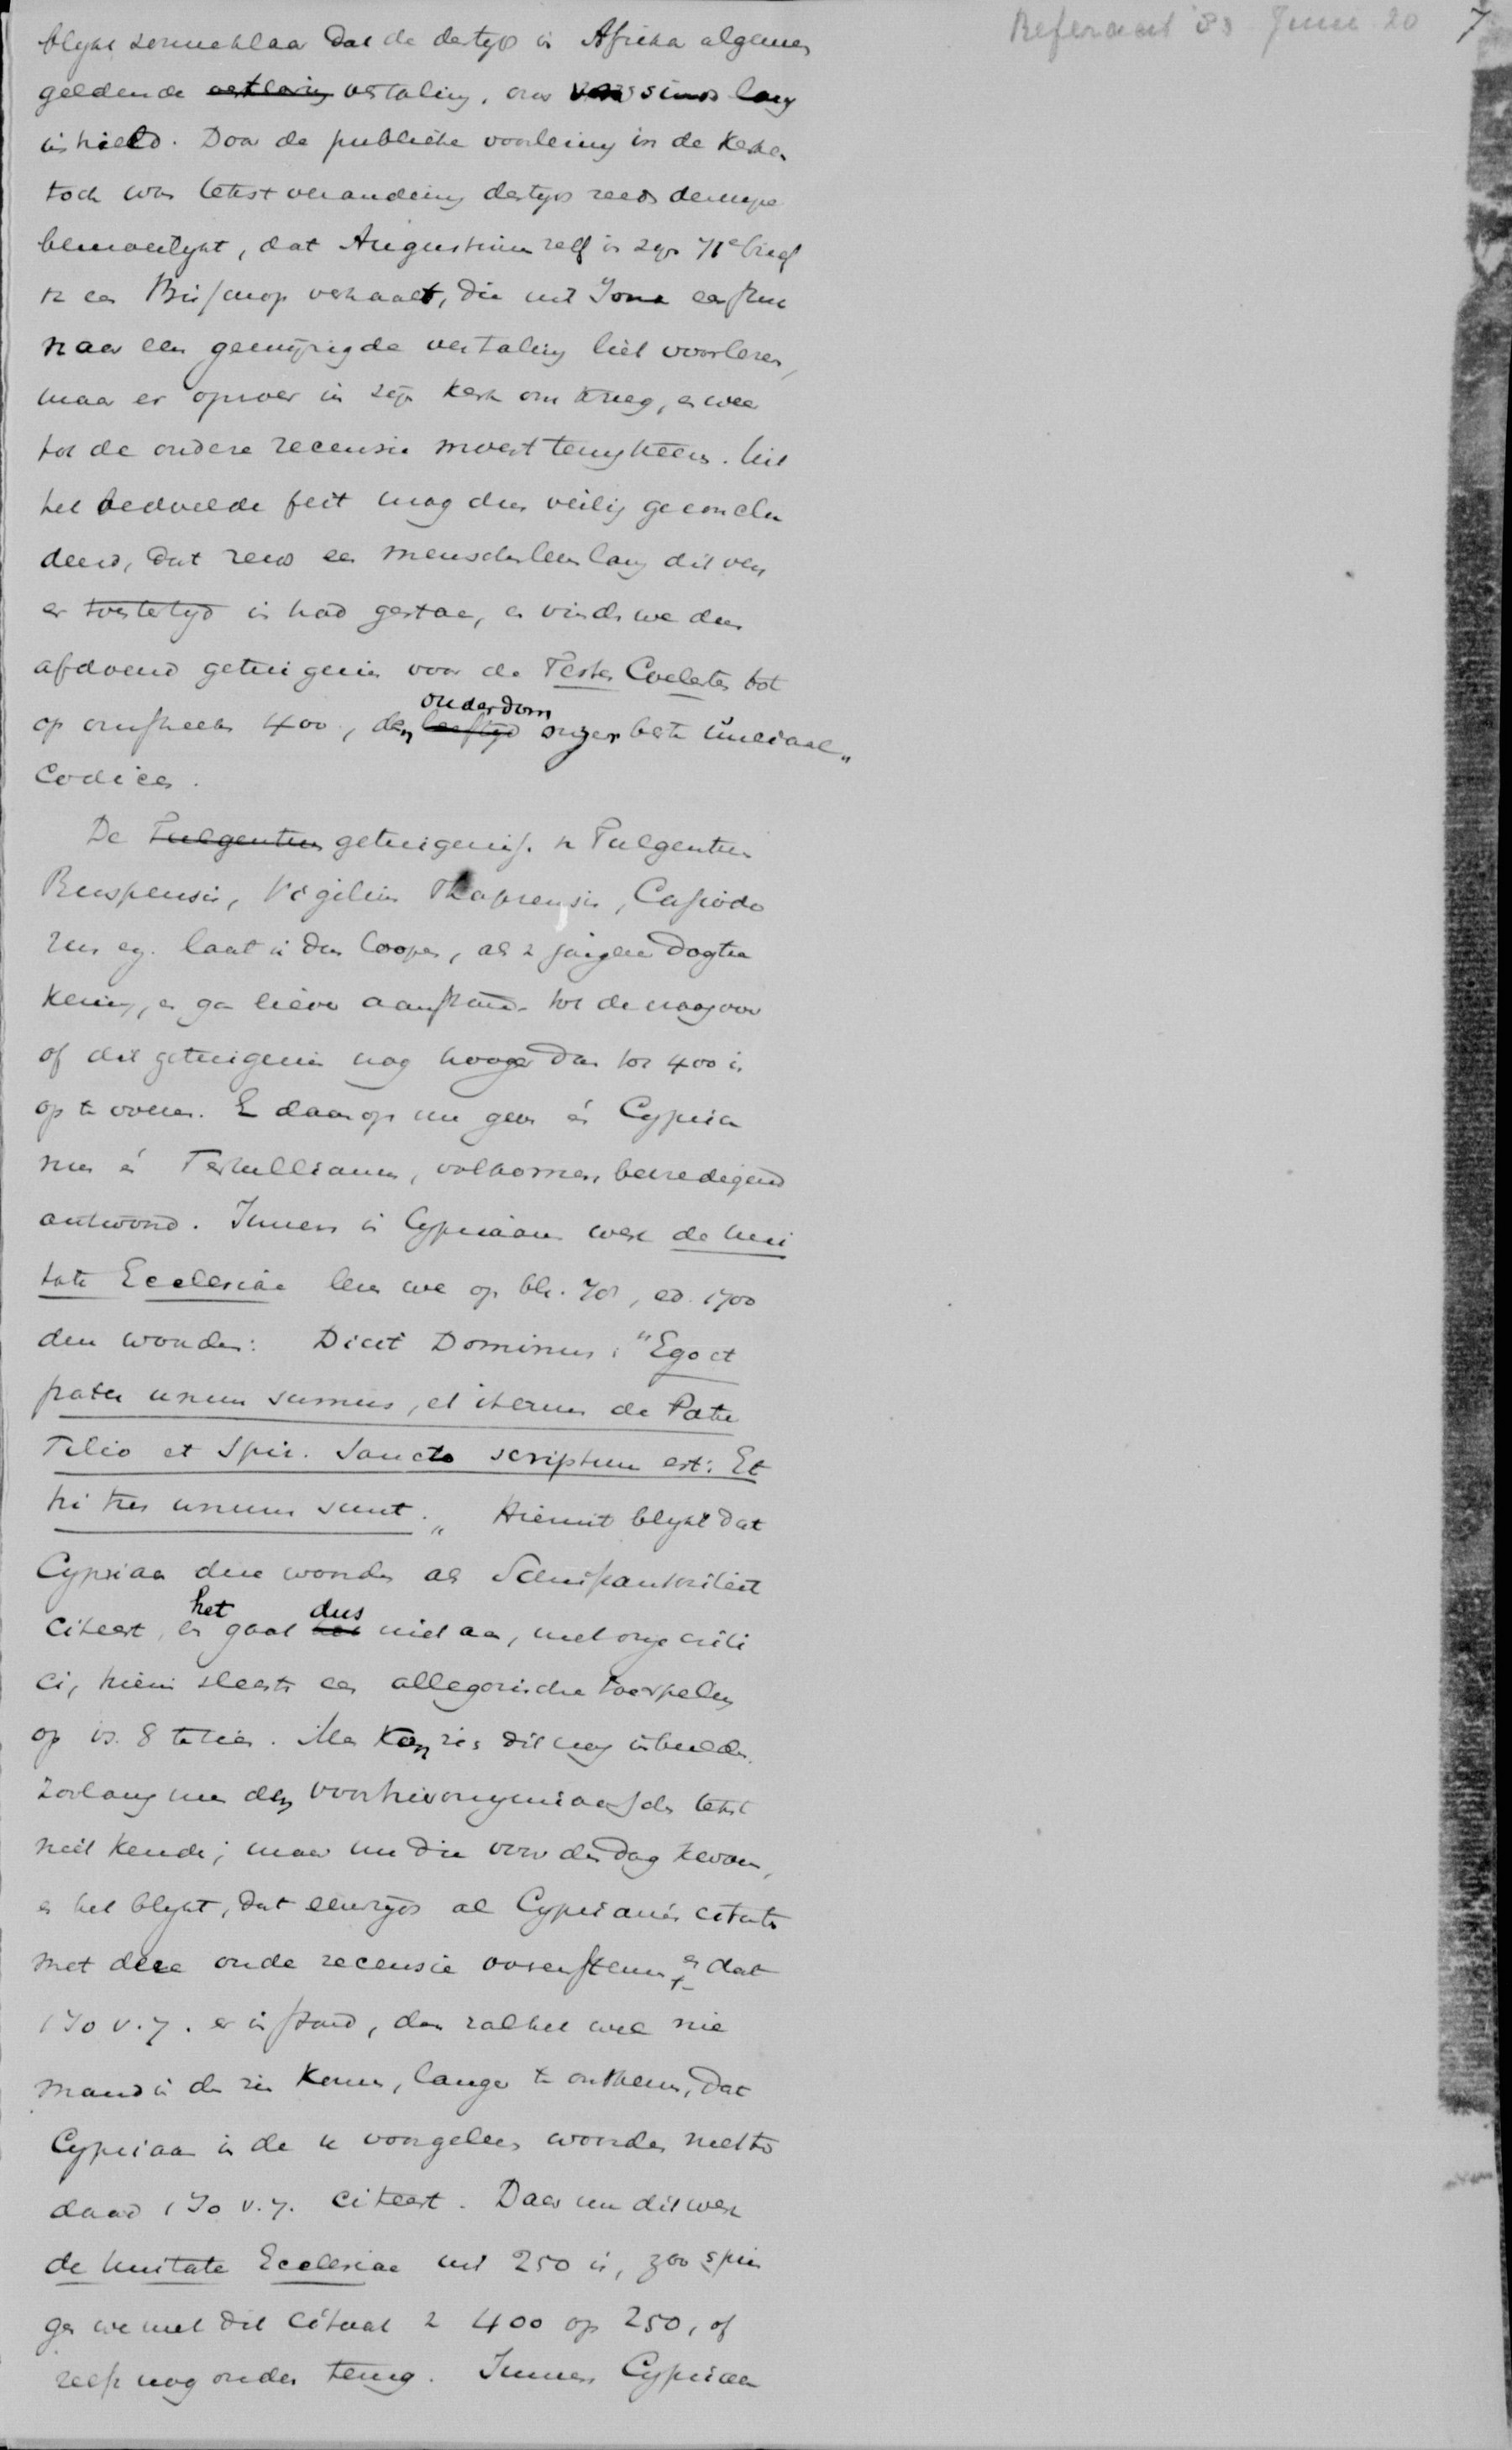 Referaat '83 Juni 20 7
blykt zonneklaar dat de destyds in Afrika algemeen
geldende vertaling, ons vers sinds lang
in hield. Door de publieke voorlezing in de kerken
toch was tekst verandering destyds reeds dermate
bemoeilykt, dat Augustinus zelf in zyn 71e brief
een Bisschop verhaalt, die uit Jona een stuk
naar een gewyzigde vertaling liet voorlezen,
maar er oproer in zyn kerk om kreeg, en weer
tot de oudere recensie moest terugkeeren. Uit
het bedoelde feit mag dus veilig geconclu
deerd, dat reeds een menschenleven lang dit vers
er in had gestaan, en vinden we dus
afdoend getuigenis voor de Testes Coelestes tot
op omstreeks 400, den ouderdom onzer beste unciaal
Codices.
De Fulgentius getuigenis. v Fulgentius
Ruspensis, Vigilius Thapsensis, Cassiodo
rus laat ik dus loopen, als v jonger dagtee
kening, en ga liever aanstonds tot de vraag over
of dit getuigenis nog hooger dan tot 400 is
op te voeren. En daarop nu geven én Cypria
nus én Tertullianus, volkomen bevredigend
antwoord. Immers in Cypriaans werk de Uni
tate Ecclesiae lezen we op blz. 701, ed. 1700
deze woorden: Dicit Dominus: "Ego et
pater unum sumus, et iterum de Patre
Filio et Spir. Sancto scriptum est: Et
hi tres unum sunt." Hieruit blykt dat
Cypriaan deze woorden als Schriftautoriteit
citeert, en het gaat dus niet aan, met onze criti
ci, hierin slechts een allegorische toespeling
op vs. 8 te zien. Men kon zich dit nog inbeelden
zoolang men den voorhieronymiaanschen tekst
niet kende; maar nu die voor den dag kwam,
en het blykt, dat eenvoudig al Cyprianus citaten
met deze oude recensie overeenstemmen en dat
1 Jo v. 7. er in stond, dan zal het wel nie
mand in den zin komen, langer te ontkennen, dat
Cypriaan in de u voorgelezen woorden metter
daad 1 Jo v. 7. citeert. Daar nu dit werk
de Unitate Ecclesiae uit 250 is, zoo sprin
gen we met dit citaat v 400 op 250, of
zelfs nog ouder terug. Immers Cypriaan